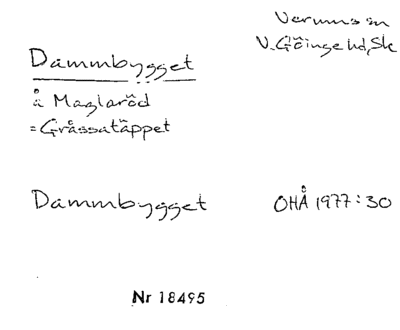 Verums sn
V. Göinge hd, Sk
Dammbygget
å Maglaröd
= Gråssatäppet
Dammbygget
OHÅ 1977:30
Nr 18495